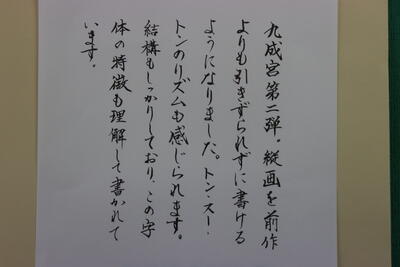 九成宮第二弾。縦画を前作
よりも引きずられずに書ける
ようになりました。トン・スー・
トンのリズムも感じられます。
結構もしっかりしており、この字
体の特徴も理解して書かれて
います。